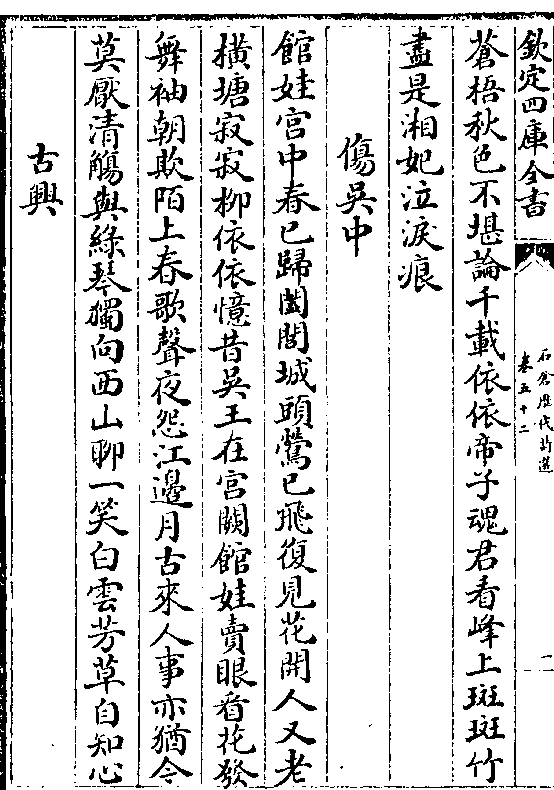 欽定四庫全書
石倉歷代詩選
卷五十二
二
蒼梧秋色不堪論千載依依帝子魂君看峰上斑斑竹
盡是湘妃泣淚痕
傷吳中
館娃宮中春已歸闔閭城頭鶯已飛復見花開人又老
橫塘寂寂柳依依憶昔吳王在宮闕館娃賣眼看花發
舞袖朝欺陌上春歌聲夜怨江邊月古來人事亦猶今
莫厭清觴與綠琴獨向西山聊一笑白雲芳草自知心
古興